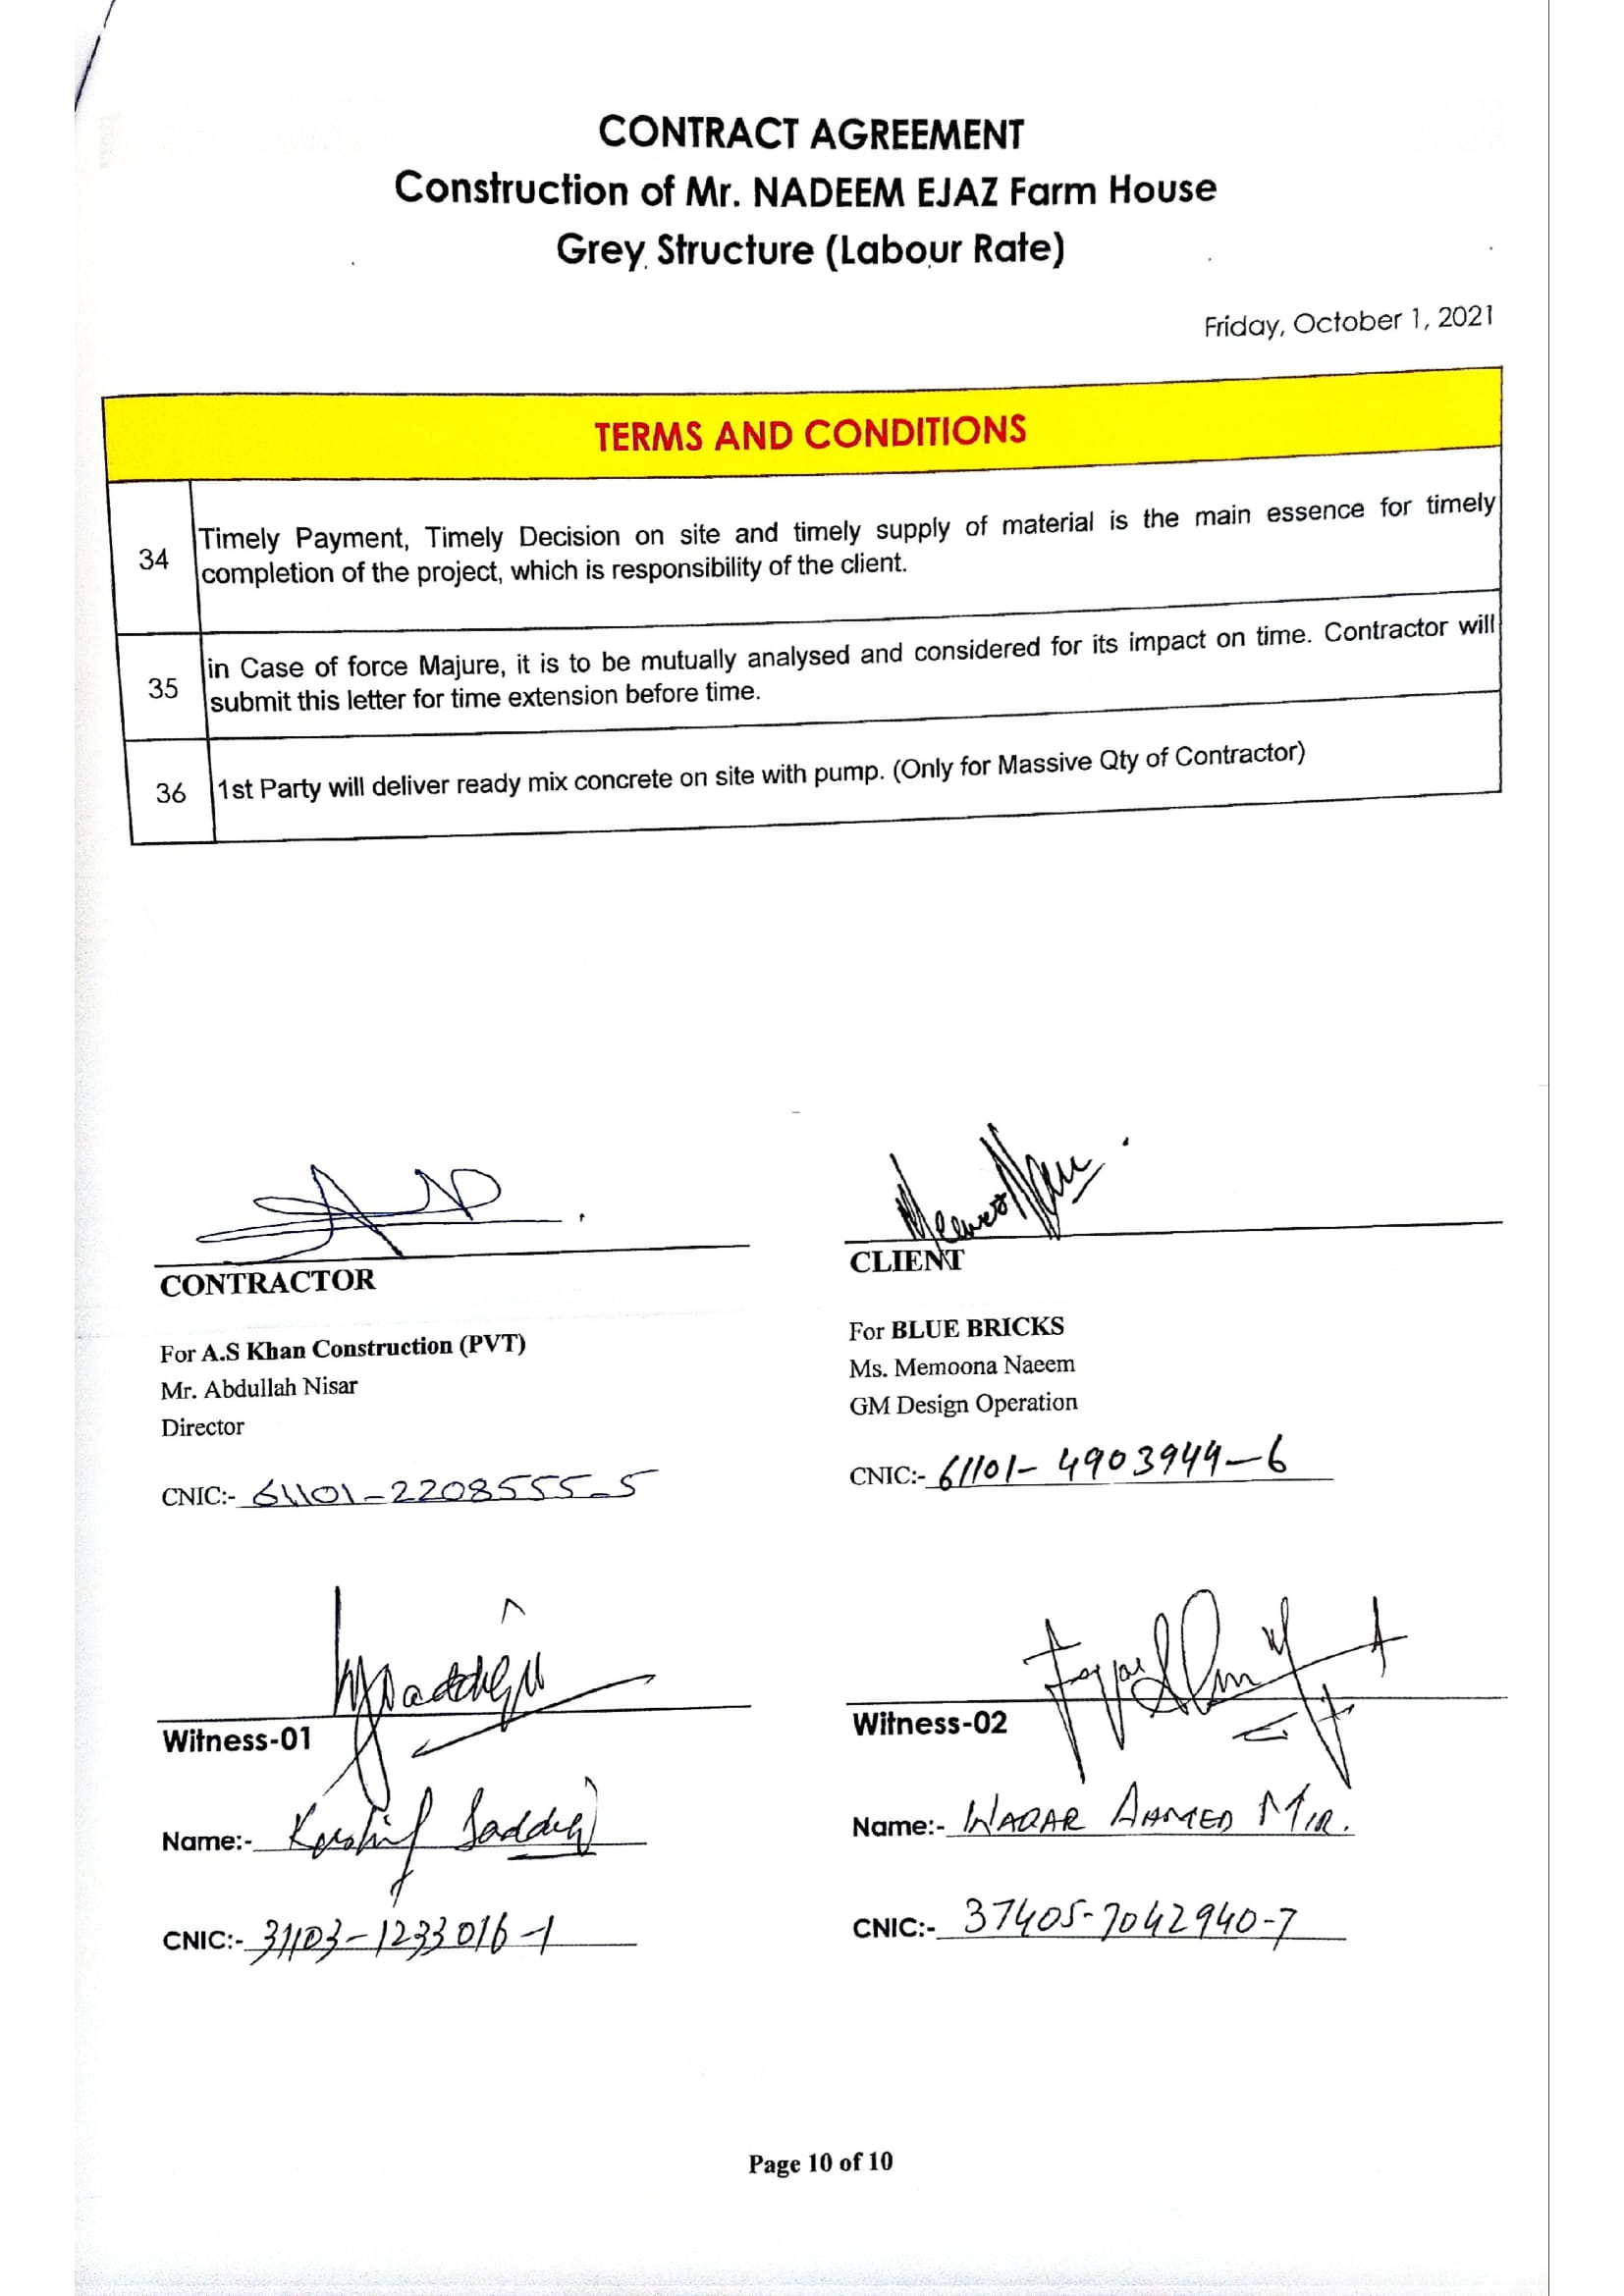 CONTRACT AGREEMENT
Construction of Mr. NADEEM EJAZ Farm House
Grey Structure (Labour Rate)
Friday, October 1, 2021
TERMS AND CONDITIONS
34 Timely Payment, Timely Decision on site and timely supply of material is the main essence for timely
completion of the project, which is responsibility of the client.
35 in Case of force Majure, it is to be mutually analysed and considered for its impact on time. Contractor will
submit this letter for time extension before time.
36 1st Party will deliver ready mix concrete on site with pump. (Only for Massive Qty of Contractor)
CONTRACTOR
For A.S Khan Construction (PVT)
Mr. Abdullah Nisar
Director
CNIC:- 61101-2208555-5
CLIENT
For BLUE BRICKS
Ms. Memoona Naeem
GM Design Operation
CNIC:- 61101-4903944-6
Witness-01
Name:- Kashif Saddiq
CNIC:- 31103-1233016-1
Witness-02
Name:- WAQAR AHMED MIR.
CNIC:- 37405-7042940-7
Page 10 of 10